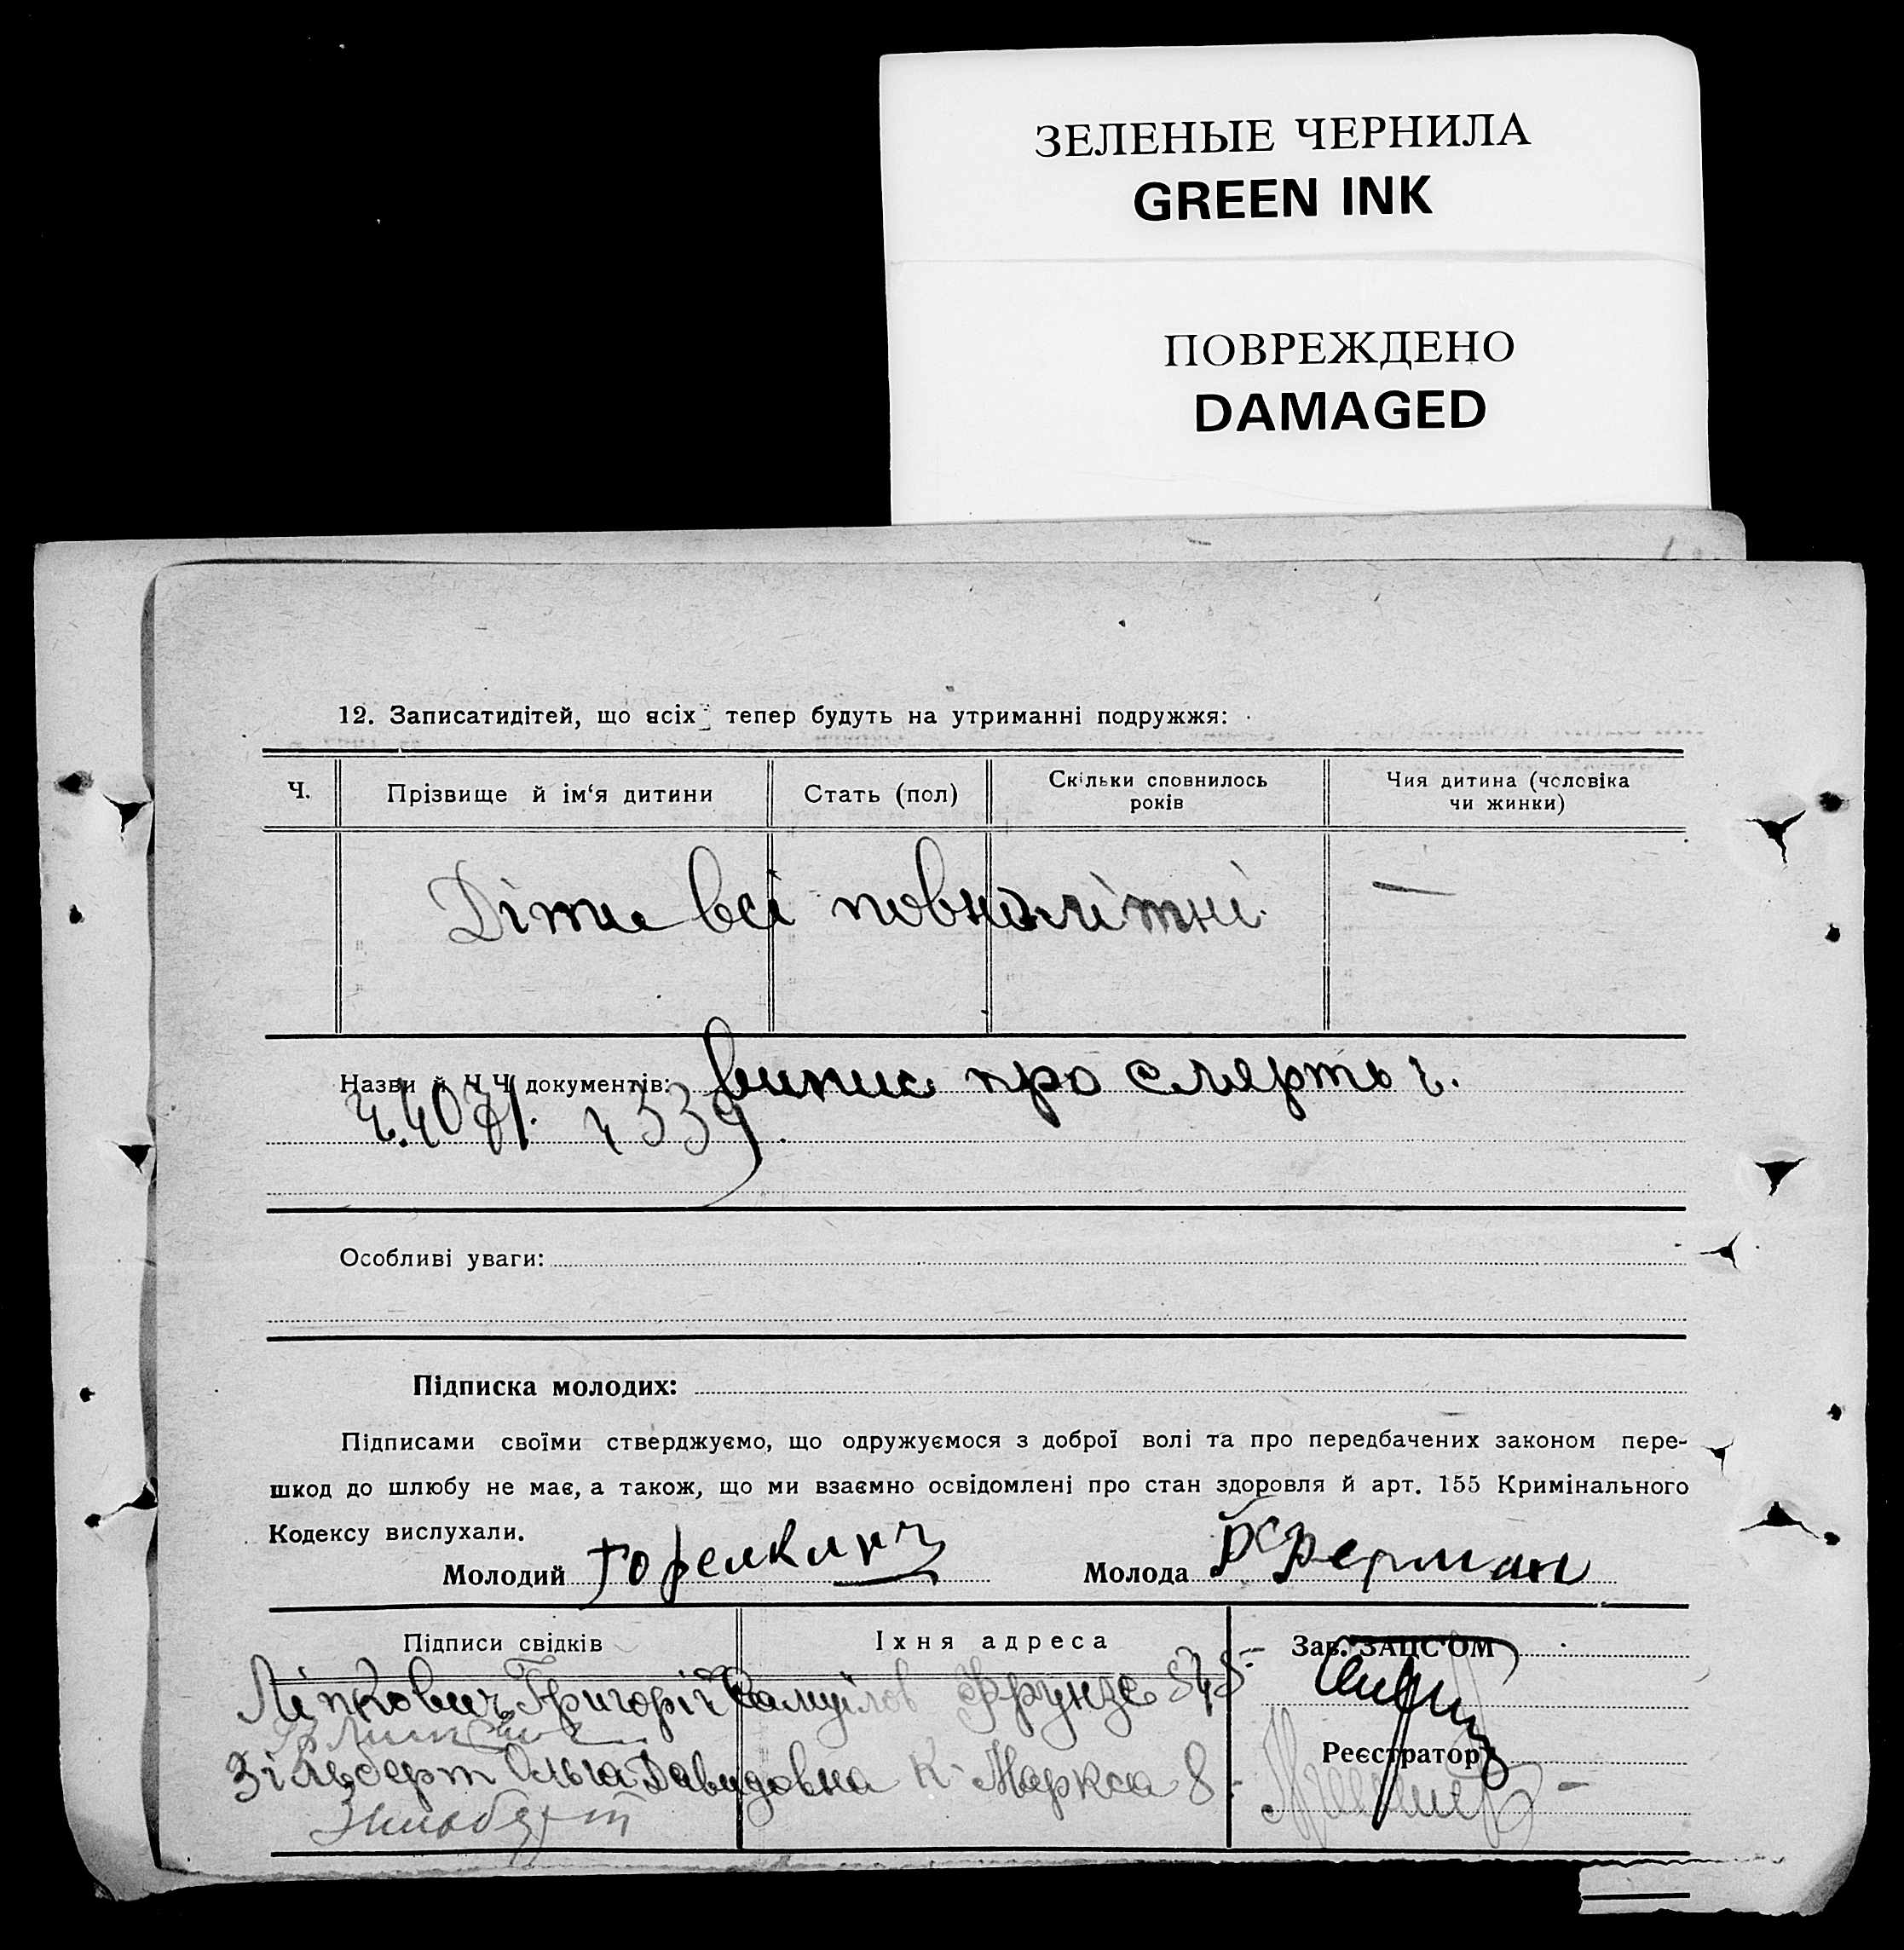 ЗЕЛЕНЫЕ ЧЕРНИЛА
GREEN INK
ПОВРЕЖДЕНО
DAMAGED
12. Записатидітей, що всіх тепер будуть на утриманні подружжя:
Ч.
Прізвище й ім‘я дитини
Стать (пол)
Скільки сповнилось
років
Чия дитина (чоловіка
чи жинки)
Діти всі повнолітні —
Назви й Ч.Ч. документів: випис про смярть ч.
ч. 4071. ч 339.
Особливі уваги:
Підписка молодих:
Підписами своїми стверджуємо, що одружуємося з доброї волі та про передбачених законом пере-
шкод до шлюбу не має, а також, що ми взаємно освідомлені про стан здоровля й арт. 155 Кримінального
Кодексу вислухали.
Молодий Молода Ферман
Підписи свідків
Їхня адреса
Зав. ЗАПС'ОМ
Ліпкович Григорій Самуілов Фрунзе
Реєстратор
Зільберт Ольга Давидовна К-Маркса 8
Зильберт